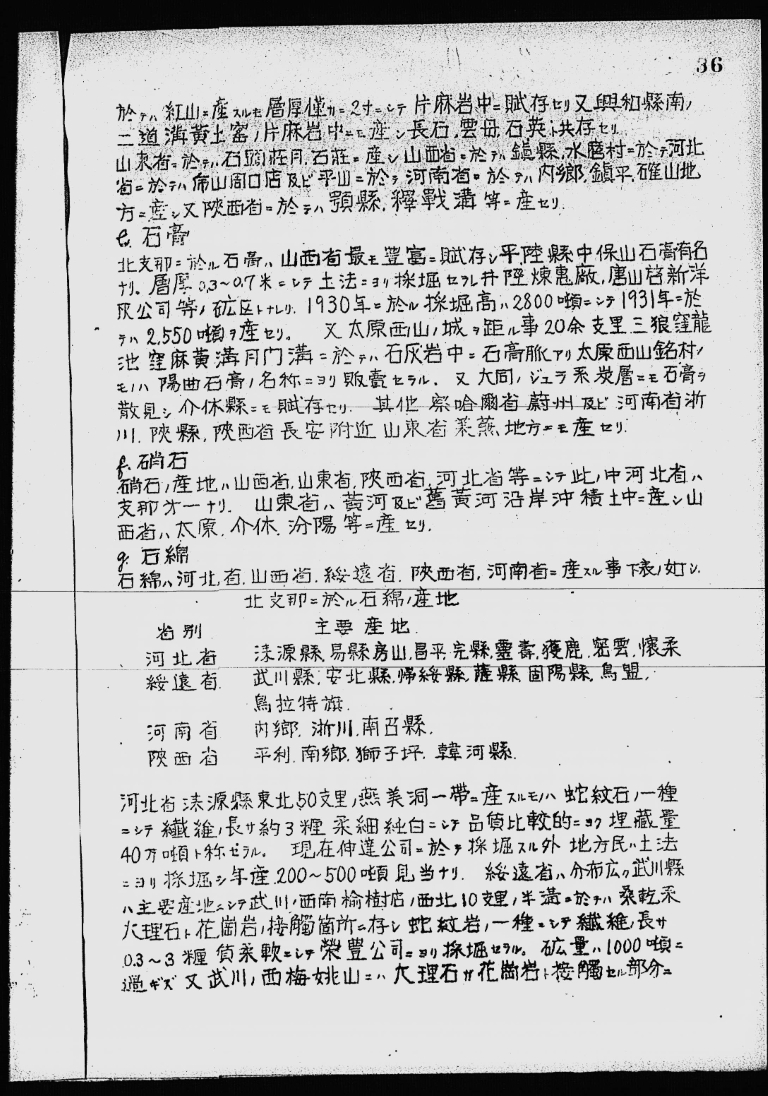 36
於テハ紅山ニ産スルモ層厚僅カニ2寸ニシテ片麻岩中ニ賦存セリ又興和縣南ノ
二道溝黄土窰ノ片麻岩中ニモ産シ長石、雲母石英ト共存セリ
山東省ニ於テハ石頭莊月、石莊ニ産シ山西省ニ於テハ鎮縣、水磨村ニ於テ河北
省ニ於テハ房山周口店及ビ平山ニ於テ河南省ニ於テハ内鄉、鎮平、確山地
方ニ産シ又陝西省ニ於テハ縣、釋戰溝等ニ産セリ.
e. 石膏
北支那ニ於ル石膏ハ山西省最モ豐富ニ賦存シ平陸縣中保山石膏有名
ナリ、層厚0.3~0.7米ニシテ土法ニヨリ採掘セラレ井陘煉焦廠,唐山啓新洋
灰公司等ノ砿区トナレリ. 1930年ニ於ル採掘高ハ2800噸ニシテ1931年ニ於
テハ2,550噸ヲ産セリ. 又太原西山ノ城ヲ距ル事20余支里三狼窪龍
池窪麻黄溝月門溝ニ於テハ石灰岩中ニ石膏脈アリ太原西山銘村ノ
モノハ陽曲石膏ノ名称ニヨリ販賣セラル. 又大同ノジュラ系炭層ニモ石膏ヲ
散見シ介休縣ニモ賦存セリ. 其他察哈爾省蔚州及ビ河南省淅
川.陝縣.陝西省長安附近山東省萊蕪地方ニモ産セリ.
f. 硝石
硝石ノ産地ハ山西省,山東省,陝西省,河北省等ニシテ此ノ中河北省ハ
支那オ一ナリ. 山東省ハ黄河及ビ舊黄河沿岸沖積土中ニ産シ山
西省ハ太原.介休.汾陽等ニ産セリ.
g. 石綿
石綿ハ河北省.山西省.綏遠省.陝西省,河南省ニ産スル事下表ノ如シ.
北支那ニ於ル石綿ノ産地
省別 主要産地
河北省 淶源縣,易縣,房山,昌平,完縣,靈壽,獲鹿.密雲.懷柔
綏遠省 武川縣.安北縣.歸綏縣.薩縣.固陽縣.烏盟.
烏拉特旗.
河南省 内鄉.淅川.南召縣.
陝西省 平利.南鄉.獅子坪.韓河縣.
河北省淶源縣東北50支里ノ燕美洞一帶ニ産スルモノハ蛇紋石ノ一種
ニシテ纖維ノ長サ約3糎柔細純白ニシテ品質比較的ニヨク埋蔵量
40万噸ト称セラル. 現在伸達公司ニ於テ採掘スル外地方民ハ土法
ニヨリ採掘シ年産200~500噸見当ナリ. 綏遠省ハ分布広ク武川縣
ハ主要産地ニシテ武川ノ西南楡樹店ノ西北10支里ノ半溝ニ於テハ桑乾系
大理石ト花崗岩ノ接觸箇所ニ存シ蛇紋岩ノ一種ニシテ纖維ノ長サ
0.3~3糎質柔軟ニシテ榮豐公司ニヨリ採掘セラル. 砿量ハ1000噸ニ
過ギズ又武川ノ西梅姚山ニハ大理石ガ花崗岩ト接觸セル部分ニ